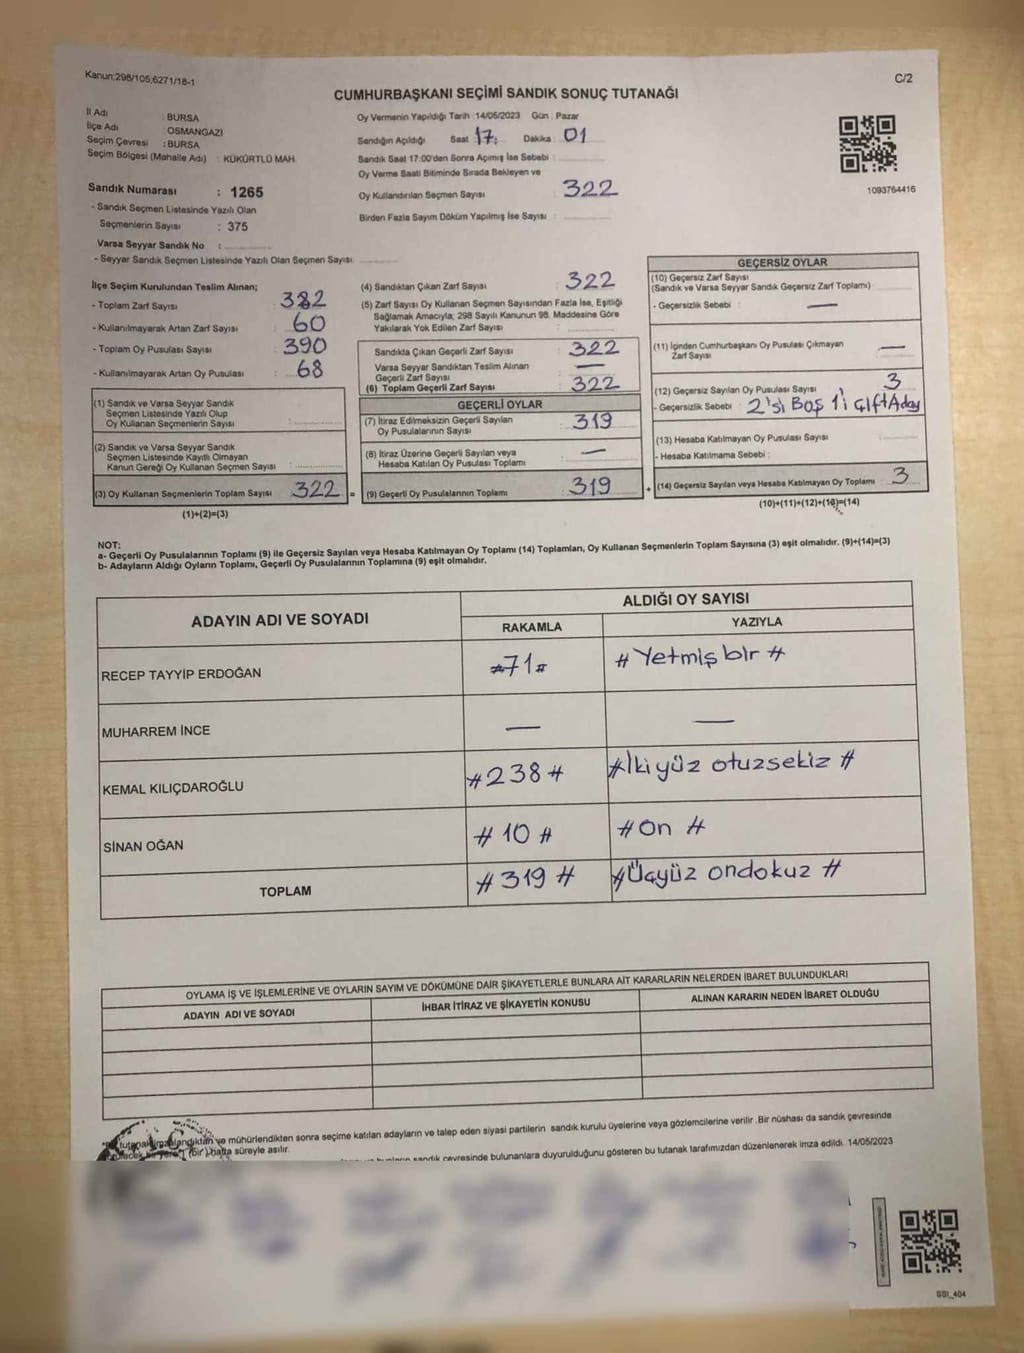 Kanun;298/105;6271/18-1
C/2
CUMHURBAŞKANI SEÇİMİ SANDIK SONUÇ TUTANAĞI
İl Adı : BURSA
İlçe Adı : OSMANGAZİ
Seçim Çevresi : BURSA
Seçim Bölgesi (Mahalle Adı) : KÜKÜRTLÜ MAH.
Sandık Numarası : 1265
- Sandık Seçmen Listesinde Yazılı Olan
Seçmenlerin Sayısı : 375
Varsa Seyyar Sandık No :
- Seyyar Sandık Seçmen Listesinde Yazılı Olan Seçmen Sayısı:
Oy Vermenin Yapıldığı Tarih 14/05/2023 Gün : Pazar
Sandığın Açıldığı Saat 17: Dakika : 01
Sandık Saat 17:00'den Sonra Açımış İse Sebebi :
Oy Verme Saati Bitiminde Sırada Bekleyen ve
Oy Kullandırılan Seçmen Sayısı : 322
Birden Fazla Sayım Döküm Yapılmış İse Sayısı :
1093764416
İlçe Seçim Kurulundan Teslim Alınan;
- Toplam Zarf Sayısı : 382
- Kullanılmayarak Artan Zarf Sayısı : 60
- Toplam Oy Pusulası Sayısı : 390
- Kullanılmayarak Artan Oy Pusulası : 68
(1) Sandık ve Varsa Seyyar Sandık
Seçmen Listesinde Yazılı Olup
Oy Kullanan Seçmenlerin Sayısı :
(2) Sandık ve Varsa Seyyar Sandık
Seçmen Listesinde Kayıtlı Olmayan
Kanun Gereği Oy Kullanan Seçmen Sayısı :
(3) Oy Kullanan Seçmenlerin Toplam Sayısı : 322 =
(1)+(2)=(3)
(4) Sandıktan Çıkan Zarf Sayısı : 322
(5) Zarf Sayısı Oy Kullanan Seçmen Sayısından Fazla İse, Eşitliği
Sağlamak Amacıyla; 298 Sayılı Kanunun 98. Maddesine Göre
Yakılarak Yok Edilen Zarf Sayısı :
Sandıkta Çıkan Geçerli Zarf Sayısı : 322
Varsa Seyyar Sandıktan Teslim Alınan
Geçerli Zarf Sayısı : —
(6) Toplam Geçerli Zarf Sayısı : 322
GEÇERLİ OYLAR
(7) İtiraz Edilmeksizin Geçerli Sayılan
Oy Pusulalarının Sayısı : 319
(8) İtiraz Üzerine Geçerli Sayılan veya
Hesaba Katılan Oy Pusulası Toplamı : —
(9) Geçerli Oy Pusulalarının Toplamı : 319 +
GEÇERSİZ OYLAR
(10) Geçersiz Zarf Sayısı
(Sandık ve Varsa Seyyar Sandık Geçersiz Zarf Toplamı)
- Geçersizlik Sebebi : —
(11) İçinden Cumhurbaşkanı Oy Pusulası Çıkmayan
Zarf Sayısı : —
(12) Geçersiz Sayılan Oy Pusulası Sayısı : 3
- Geçersizlik Sebebi : 2'si Boş 1'i Çift Aday
(13) Hesaba Katılmayan Oy Pusulası Sayısı
- Hesaba Katılmama Sebebi :
(14) Geçersiz Sayılan veya Hesaba Katılmayan Oy Toplamı : 3
(10)+(11)+(12)+(13)=(14)
NOT:
a- Geçerli Oy Pusulalarının Toplamı (9) ile Geçersiz Sayılan veya Hesaba Katılmayan Oy Toplamı (14) Toplamları, Oy Kullanan Seçmenlerin Toplam Sayısına (3) eşit olmalıdır. (9)+(14)=(3)
b- Adayların Aldığı Oyların Toplamı, Geçerli Oy Pusulalarının Toplamına (9) eşit olmalıdır.
ADAYIN ADI VE SOYADI
ALDIĞI OY SAYISI
RAKAMLA YAZIYLA
RECEP TAYYİP ERDOĞAN #71# #Yetmiş bir#
MUHARREM İNCE — —
KEMAL KILIÇDAROĞLU #238# #İkiyüz otuzsekiz#
SİNAN OĞAN #10# #On#
TOPLAM #319# #Üçyüz ondokuz#
OYLAMA İŞ VE İŞLEMLERİNE VE OYLARIN SAYIM VE DÖKÜMÜNE DAİR ŞİKAYETLERLE BUNLARA AİT KARARLARIN NELERDEN İBARET BULUNDUKLARI
ADAYIN ADI VE SOYADI İHBAR İTİRAZ VE ŞİKAYETİN KONUSU ALINAN KARARIN NEDEN İBARET OLDUĞU
tutanak imzalandıktan ve mühürlendikten sonra seçime katılan adayların ve talep eden siyasi partilerin sandık kurulu üyelerine veya gözlemcilerine verilir .Bir nüshası da sandık çevresinde
(bir) hafta süreyle asılır.
sandık çevresinde bulunanlara duyurulduğunu gösteren bu tutanak tarafımızdan düzenlenerek imza edildi. 14/05/2023
SSI_404